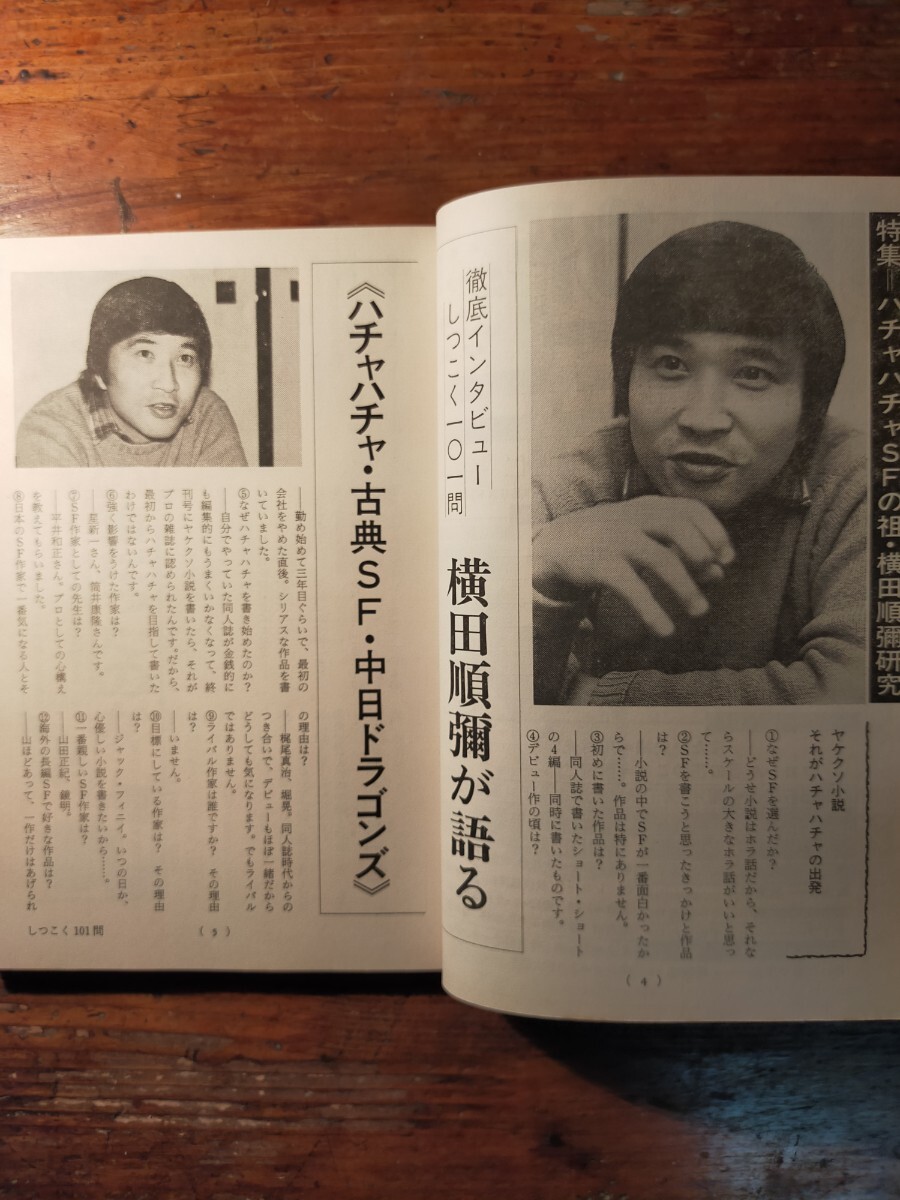 特集＝ハチャハチャSFの祖・横田順彌研究
ヤケクソ小説
それがハチャハチャの出発
①なぜSFを選んだか？
どうせ小説はホラ話だから、それな
らスケールの大きなホラ話がいいと思っ
て……。
②SFを書こうと思ったきっかけと作品
は？
――小説の中でSFが一番面白かったか
らで……。作品は特にありません。
③初めに書いた作品は？
――同人誌で書いたショート・ショート
の4編――同時に書いたものです。
④デビュー作の頃は？
（4）
徹底インタビュー
しつこく一〇一問
横田順彌が語る
《ハチャハチャ・古典SF・中日ドラゴンズ》
――勤め始めて三年目ぐらいで、最初の
会社をやめた直後。シリアスな作品を書
いていました。
⑤なぜハチャハチャを書き始めたのか？
――自分でやっていた同人誌が金銭的に
も編集的にもうまくいかなくなって、終
刊号にヤケクソ小説を書いたら、それが
プロの雑誌に認められたんです。だから、
最初からハチャハチャを目指して書いた
わけではないんです。
⑥強く影響をうけた作家は？
――星新一さん、筒井康隆さんです。
⑦SF作家としての先生は？
――平井和正さん。プロとしての心構え
を教えてもらいました。
⑧日本のSF作家で一番気になる人とそ
の理由は？
――梶尾真治、堀晃。同人誌時代からの
つき合いで、デビューもほぼ一緒だから
どうしても気になります。でもライバル
ではありません。
⑨ライバル作家は誰ですか？　その理由
は？
――いません。
⑩目標にしている作家は？　その理由
は？
――ジャック・フィニイ。いつの日か、
心優しい小説を書きたいから……。
⑪一番親しいSF作家は？
――山田正紀、鏡明。
⑫海外の長編SFで好きな作品は？
――山ほどあって、一作だけはあげられ
（5）
しつこく101問